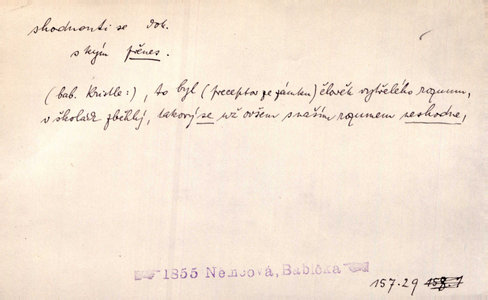 shodnouti se dok.
s kým přenes.
(bab. Kristle:), to byl (preceptor ze zámku) člověk vytřelého rozumu,
v školách zběhlý, takový se už ovšem s naším rozumem neshodne,
1855 Němcová, Babička
157.29